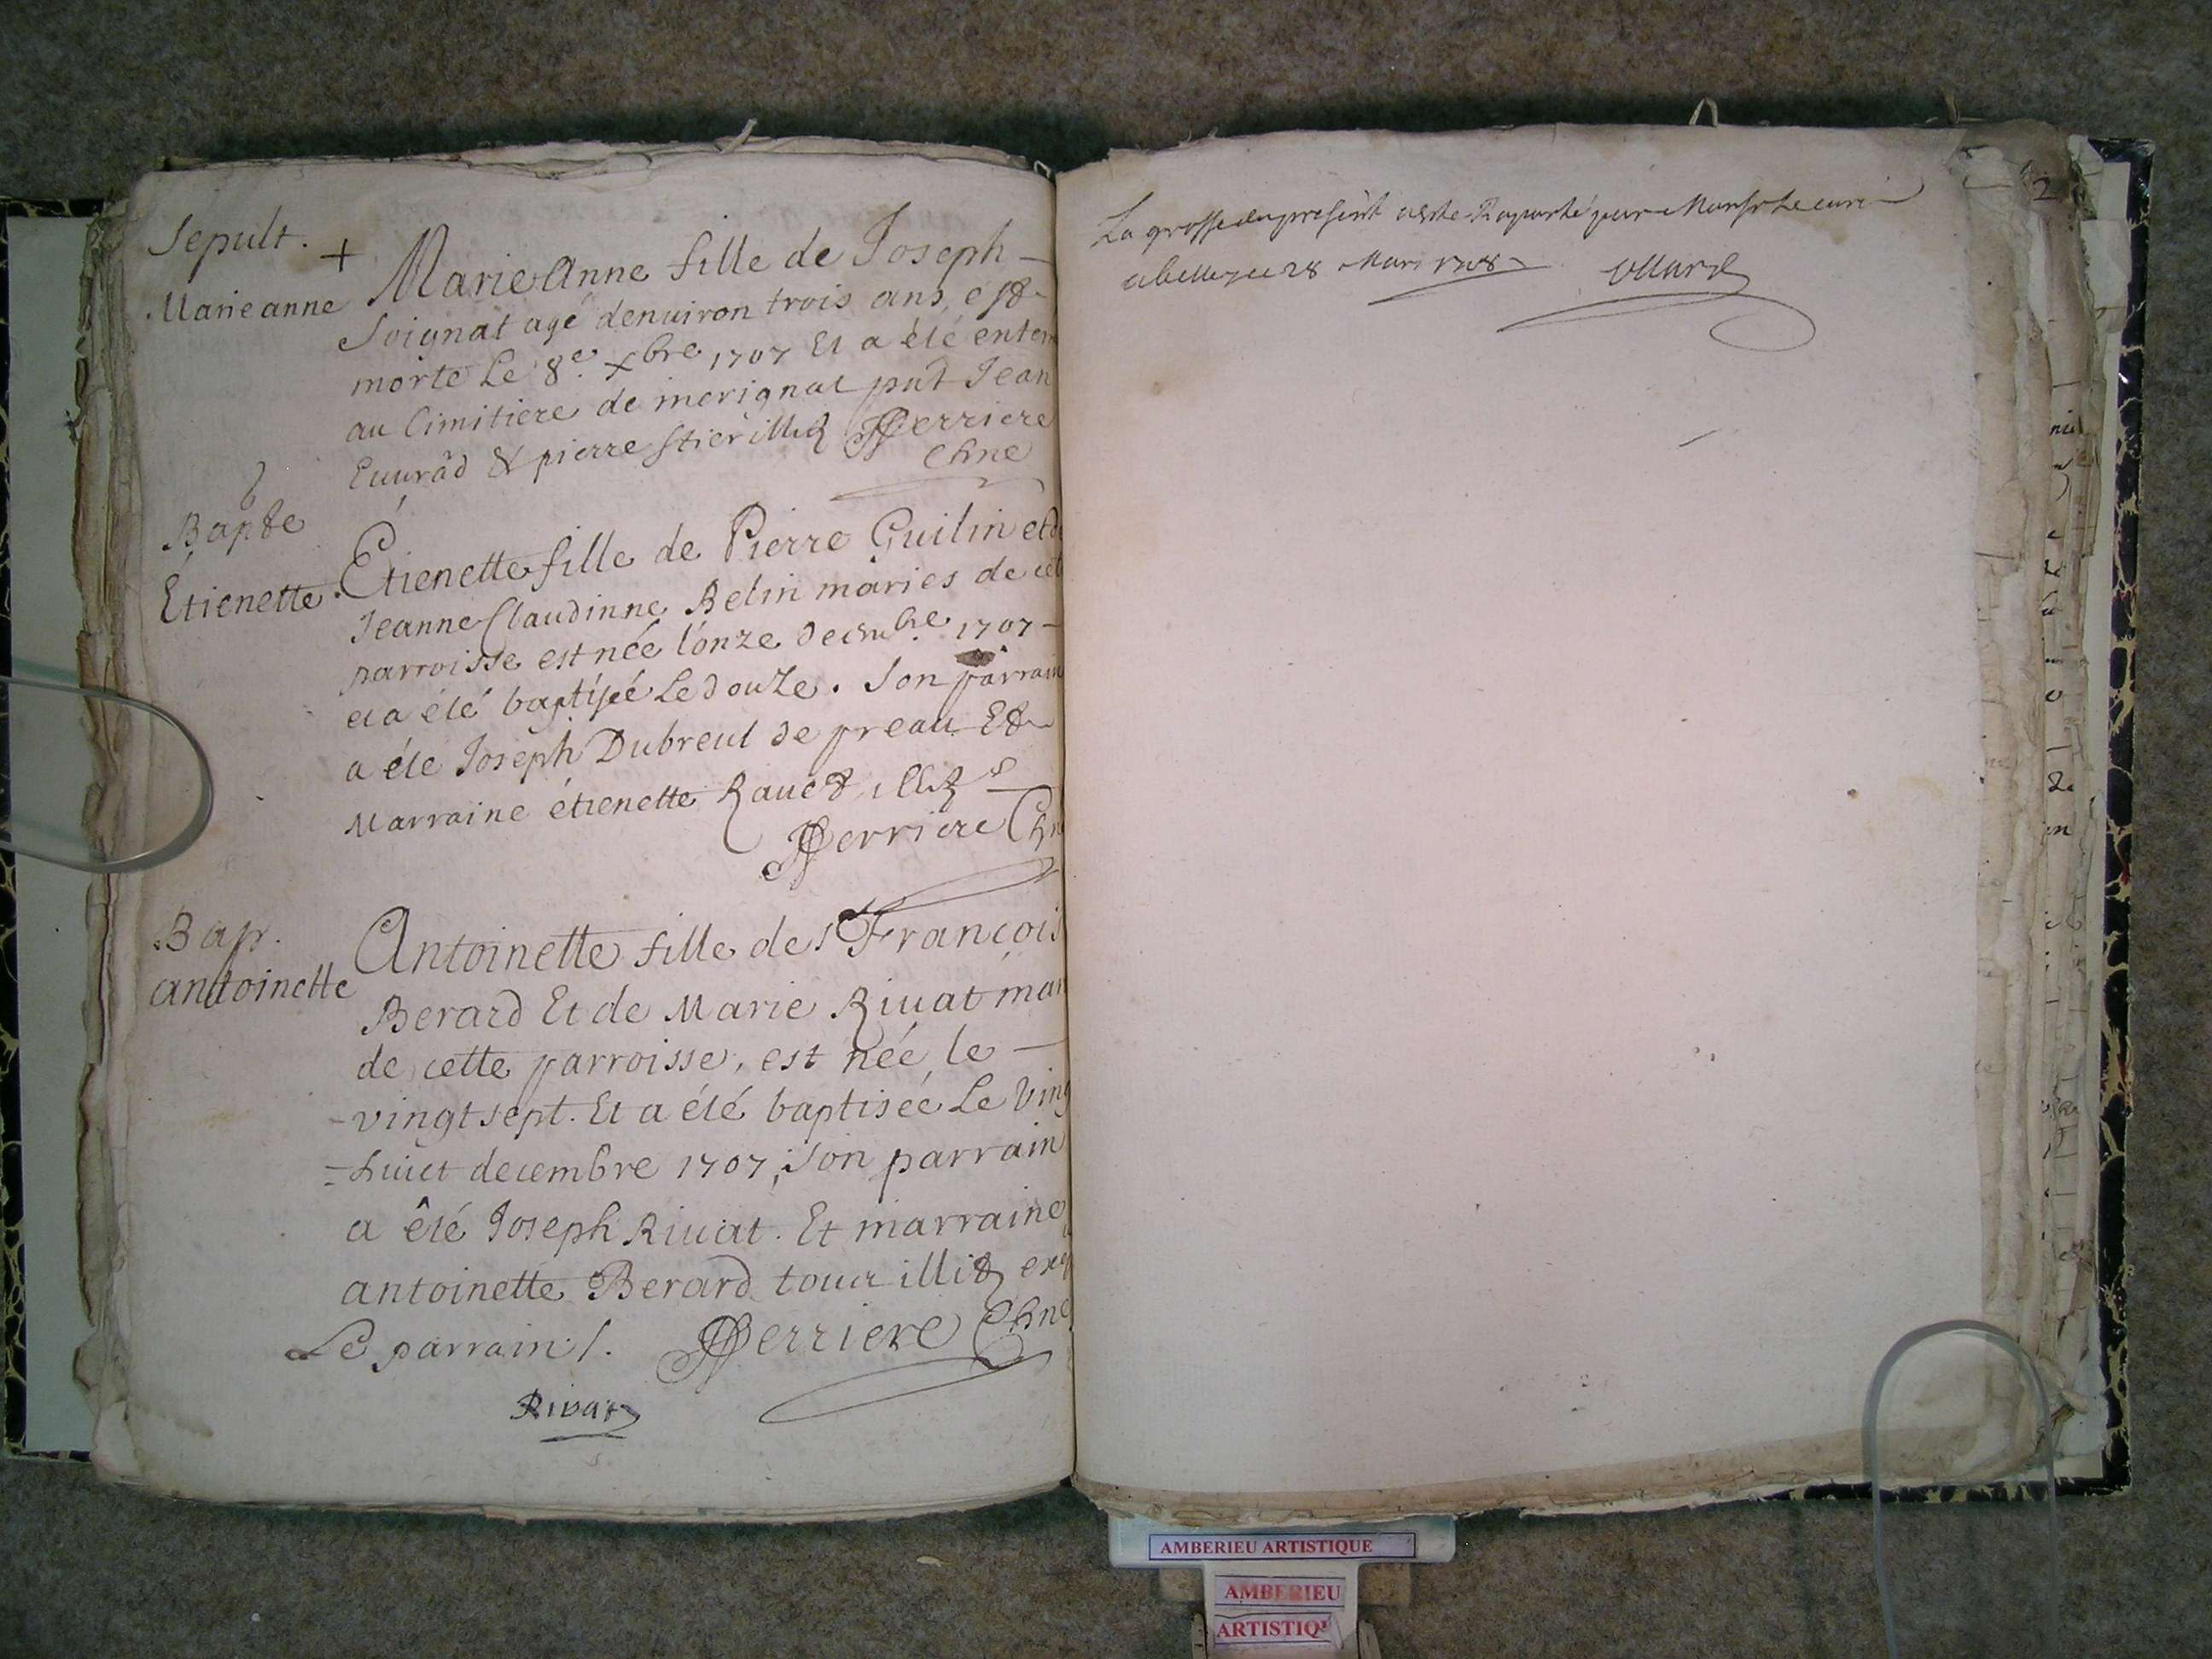 Sepult. +
Marie anne
Marie Anne fille de Joseph
Soignat agé denuiron trois ans, est
morte Le 8e. xbre 1707 Et a été enter
au Cimitiere de merignat pnt Jean
Euurâd & pierre illit Perriere
Bapte
Étienette.
Étienette fille de Pierre Guilin et de
Jeanne Claudinne Belin mâries de cet
parroisse est née l'onze 1707
et a été baptisée Le douze. Son parrain
a éte Joseph Dubreul de preau Et
Marraine étienette Rauet
Perriere
Bap.
antoinette
Antoinette fille de sr François
Berard Et de Marie Riuat mar
de cette parroisse, est née le
vingt sept. Et a été baptisée Le Ving
=huict decembre 1707, Son parrain
a êté Joseph Riuat. Et marraine
antoinette Berard illit
Le parrain /. Perriere
Rivat
2
La grosse du present a este Raporté par Monsr Le curé
a belley ce 28 Mars 1708
AMBERIEU ARTISTIQUE
AMBERIEU
ARTISTIQU